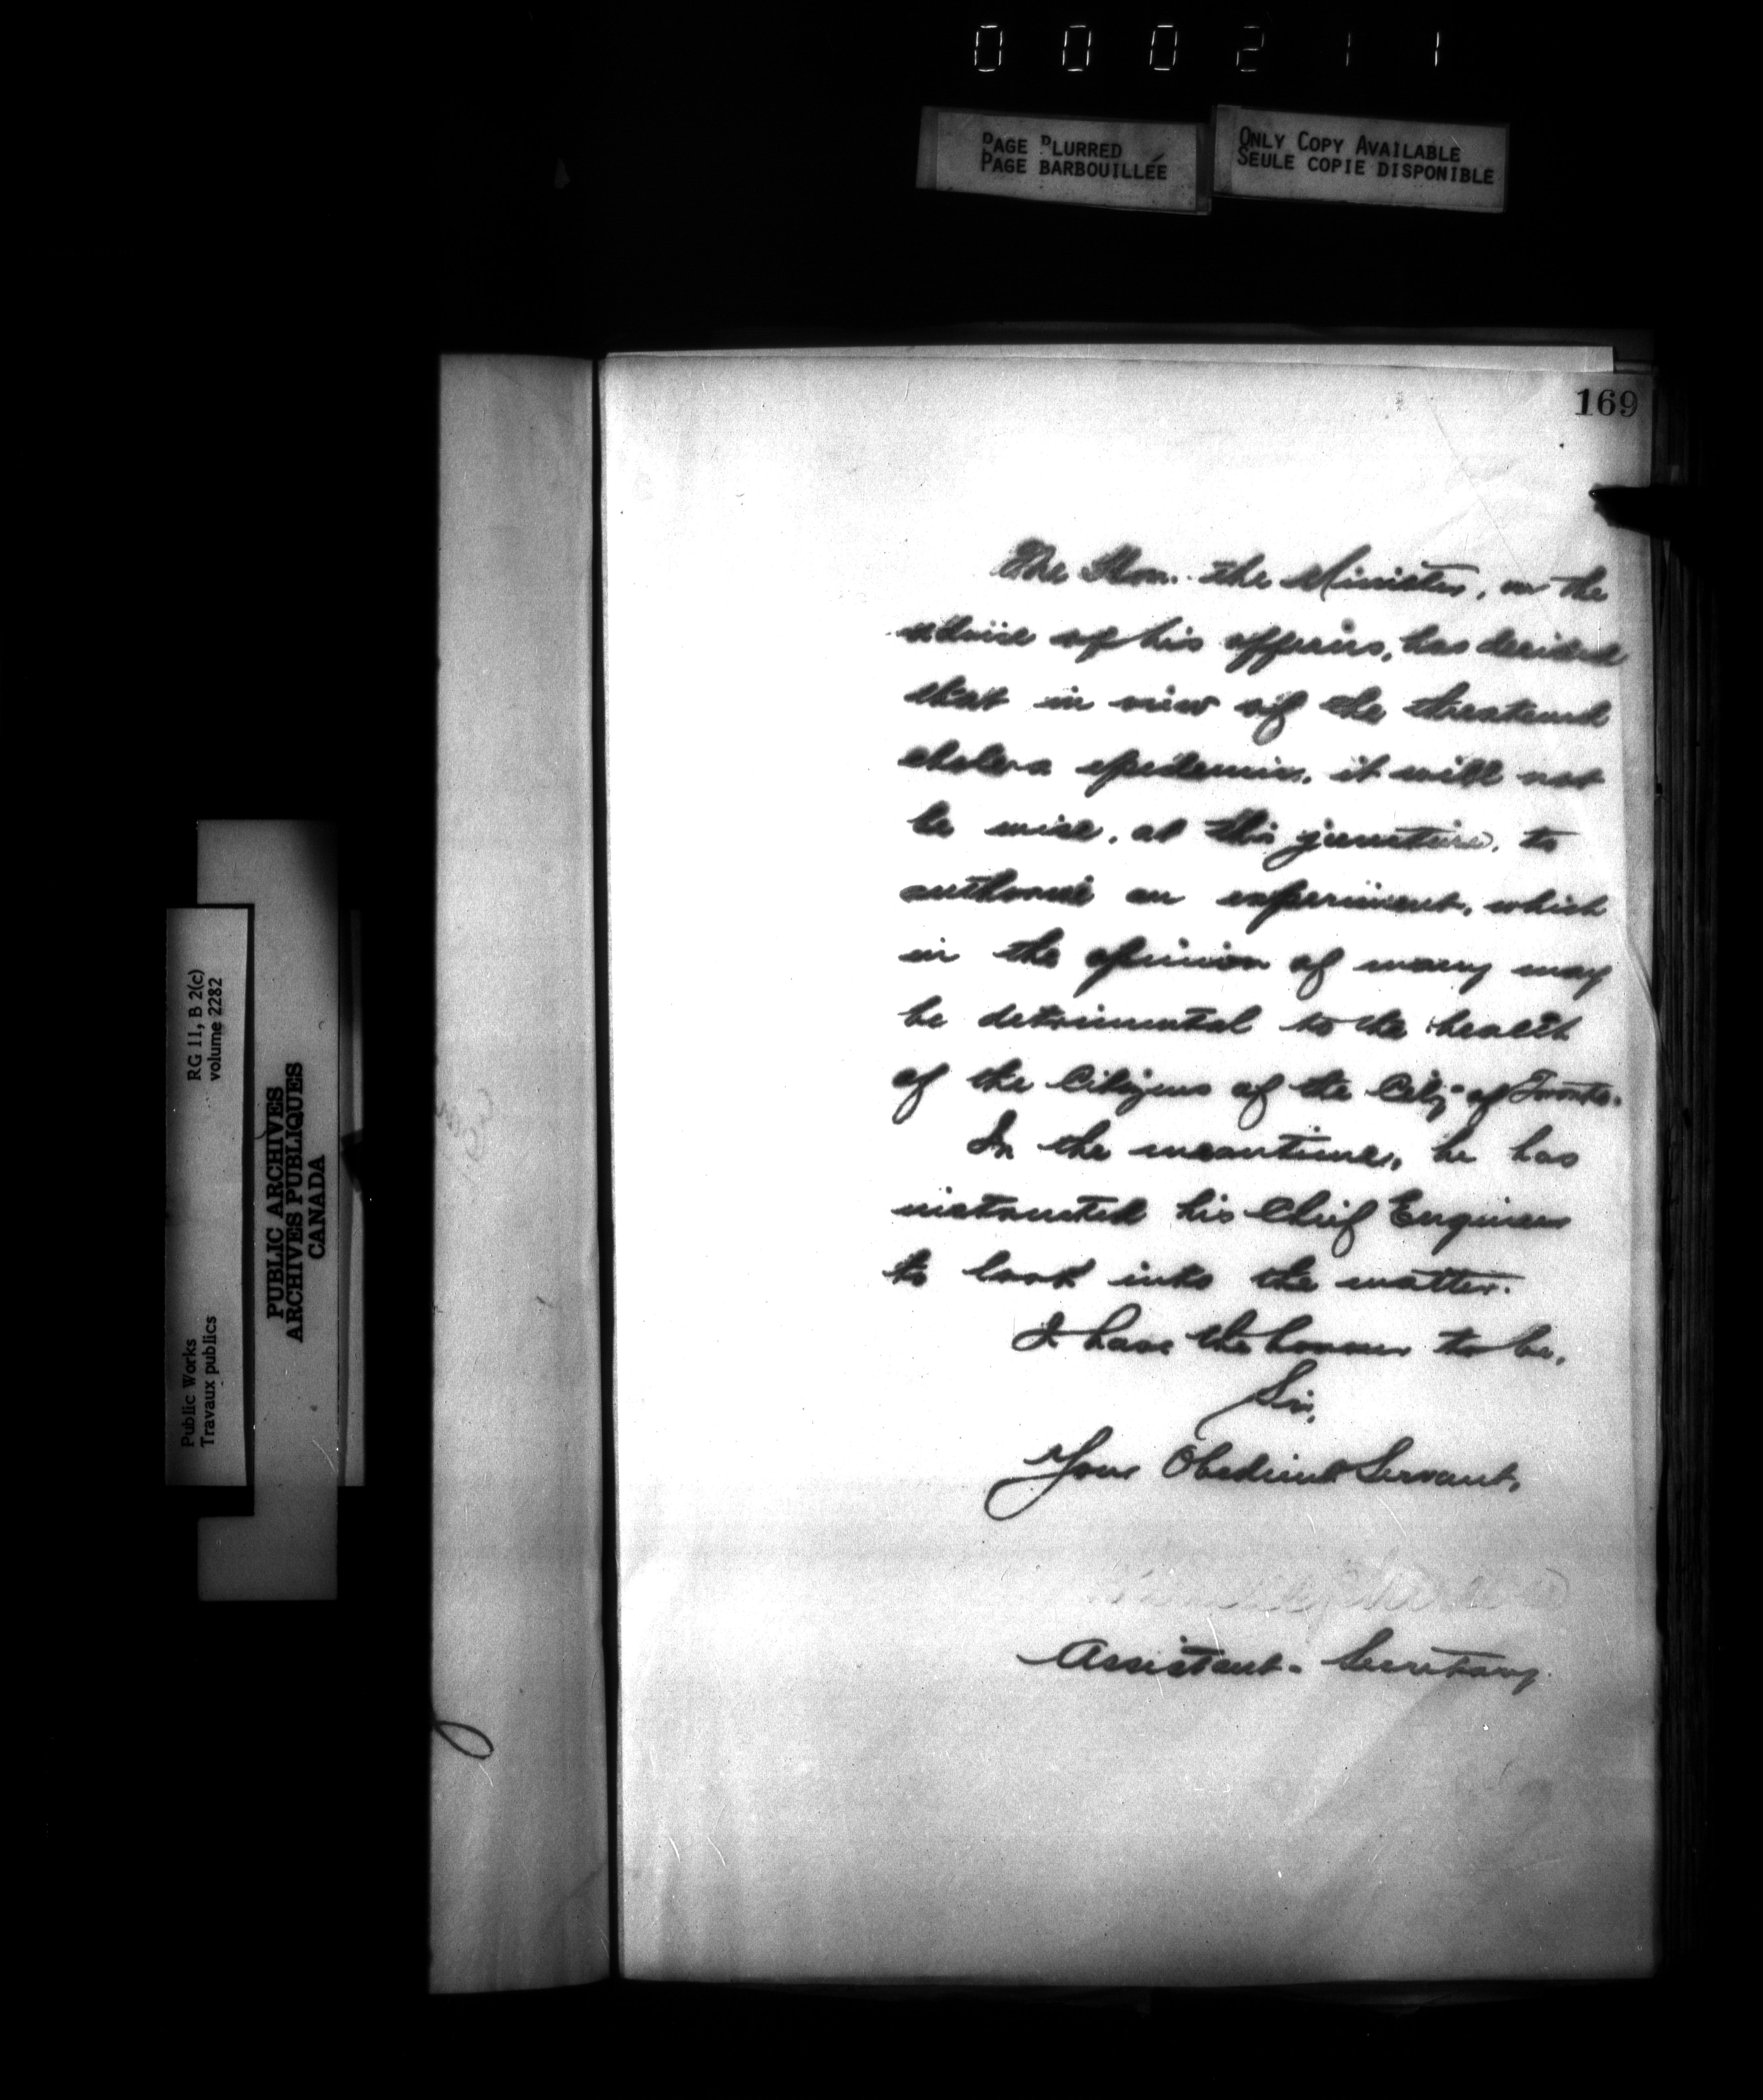 000211
PAGE BLURRED
PAGE BARBOUILLÉE
ONLY COPY AVAILABLE
SEULE COPIE DISPONIBLE
169
The Hon. the Minister, on the
advice of his officers, has decided
that in view of the threatened
cholera epidemic, it will not
be wise, at this juncture, to
authorize an experiment, which
in the opinion of many may
be detrimental to the health
of the Citizens of the City of Toronto.
In the meantime, he has
instructed his Chief Engineer
to look into the matter.
I have the honour to be,
Sir,
Your Obedient Servant,
Assistant-Secretary.
RG 11, B 2(c)
volume 2282
Public Works
Travaux publics
PUBLIC ARCHIVES
ARCHIVES PUBLIQUES
CANADA